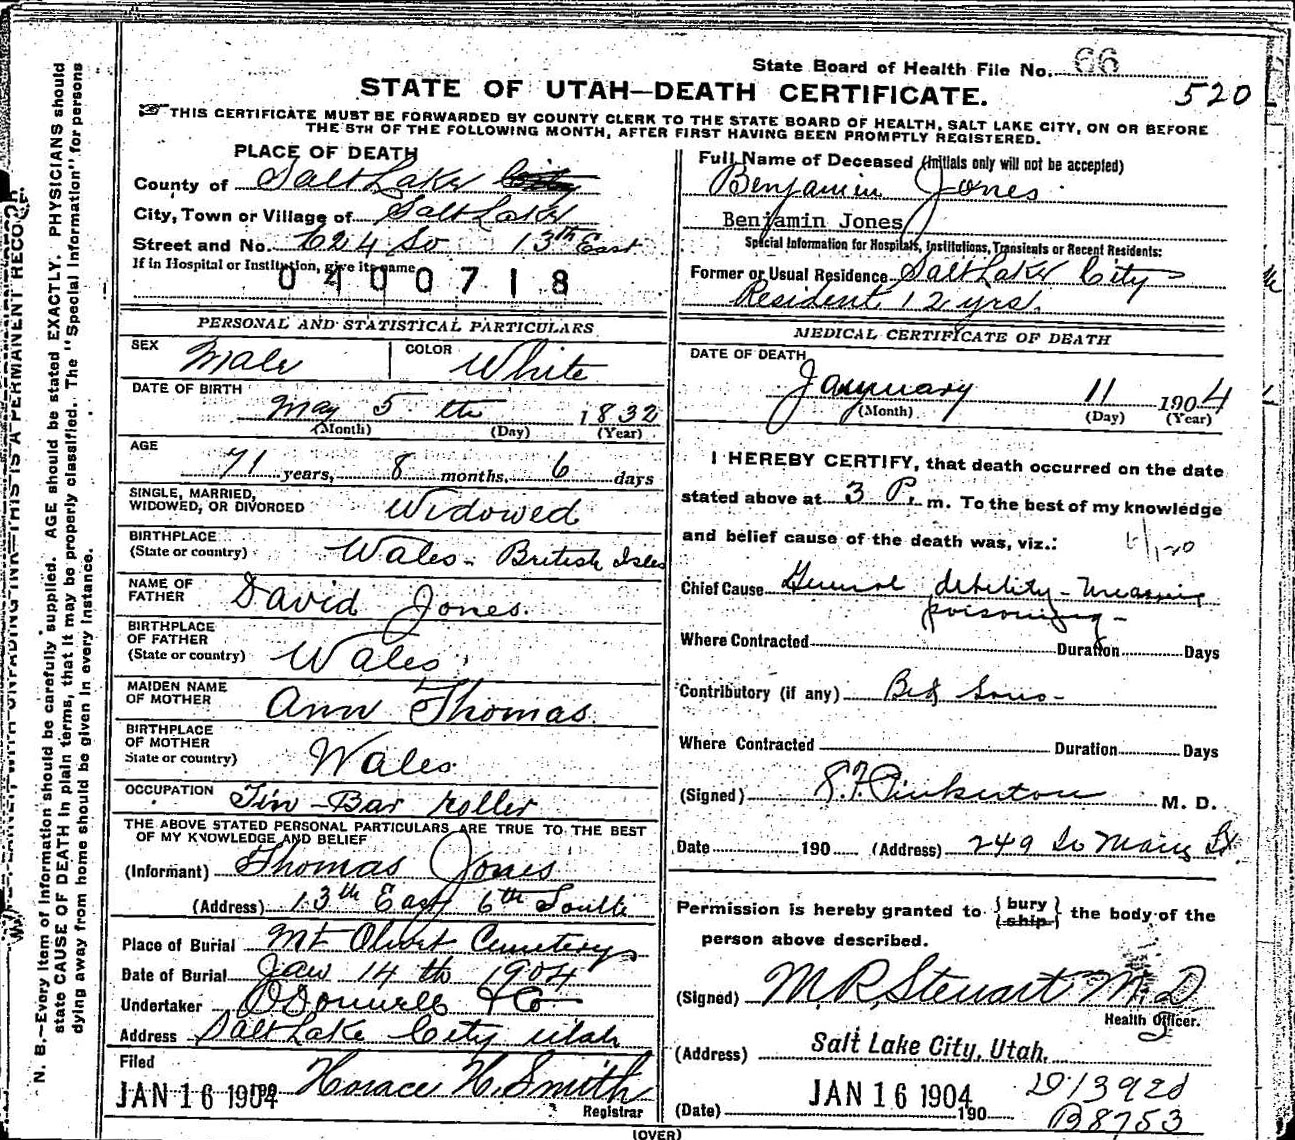 State Board of Health File No. 66
520
STATE OF UTAH—DEATH CERTIFICATE.
THIS CERTIFICATE MUST BE FORWARDED BY COUNTY CLERK TO THE STATE BOARD OF HEALTH, SALT LAKE CITY, ON OR BEFORE
THE 5TH OF THE FOLLOWING MONTH, AFTER FIRST HAVING BEEN PROMPTLY REGISTERED.
PLACE OF DEATH
County of Salt Lake City
City, Town or Village of Salt Lake
Street and No. 624 So 13th East
If in Hospital or Institution, give its name
0400718
Full Name of Deceased (Initials only will not be accepted)
Benjamin Jones
Benjamin Jones
Special Information for Hospitals, Institutions, Transients or Recent Residents:
Former or Usual Residence Salt Lake City
Resident 12 yrs.
PERSONAL AND STATISTICAL PARTICULARS
SEX Male COLOR White
DATE OF BIRTH
May 5th 1832
(Month) (Day) (Year)
AGE
71 years, 8 months, 6 days
SINGLE, MARRIED,
WIDOWED, OR DIVORCED Widowed
BIRTHPLACE
(State or country) Wales - British Isles
NAME OF
FATHER David Jones.
BIRTHPLACE
OF FATHER
(State or country) Wales
MAIDEN NAME
OF MOTHER Ann Thomas.
BIRTHPLACE
OF MOTHER
State or country) Wales.
OCCUPATION Tin-Bar roller
THE ABOVE STATED PERSONAL PARTICULARS ARE TRUE TO THE BEST
OF MY KNOWLEDGE AND BELIEF
(Informant) Thomas Jones
(Address) 13th East 6th South
Place of Burial Mt Olivet Cemetery
Date of Burial Jan 14th 1904
Undertaker O'Donnell & Co
Address Salt Lake City Utah
Filed
JAN 16 1904 190 Horace H. Smith
Registrar
MEDICAL CERTIFICATE OF DEATH
DATE OF DEATH
January 11 1904
(Month) (Day) (Year)
I HEREBY CERTIFY, that death occurred on the date
stated above at 3 P. m. To the best of my knowledge
and belief cause of the death was, viz.:
Chief Cause General debility -
poisoning -
Where Contracted Duration Days
Contributory (if any) Bed Sores -
Where Contracted Duration Days
(Signed) Pinkerton M. D.
Date 190 (Address) 249 So Main St.
Permission is hereby granted to {bury
{ship} the body of the
person above described.
(Signed) M R Stewart M D
Health Officer.
(Address) Salt Lake City, Utah.
JAN 16 1904
(Date) 190
B8753
(OVER)
N. B.—Every item of information should be carefully supplied. AGE should be stated EXACTLY. PHYSICIANS should
state CAUSE OF DEATH in plain terms, that it may be properly classified. The "Special Information" for persons
dying away from home should be given in every instance.
THIS IS A PERMANENT RECORD